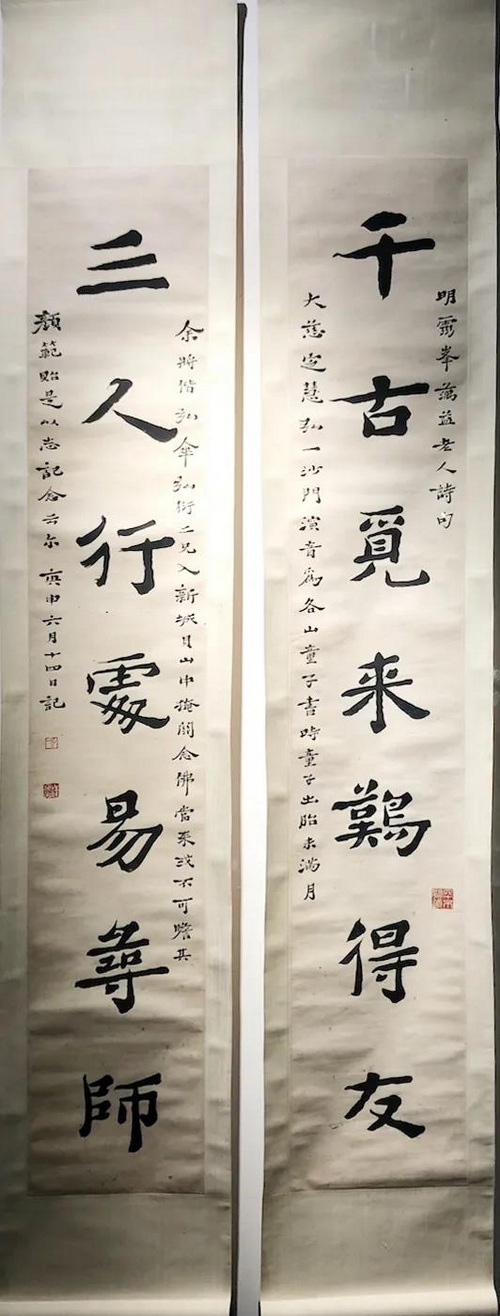 明靈峯蕅益老人詩句
千古覓来難得友
大慈定慧弘一沙門演音為各山童子書時童子出胎未滿月
余將偕弘傘弘衍二兄入新城貝山中掩關念佛當來或不可瞻其
三人行處易尋師
顏範貽是以志記念云尔 庚申六月十四日記